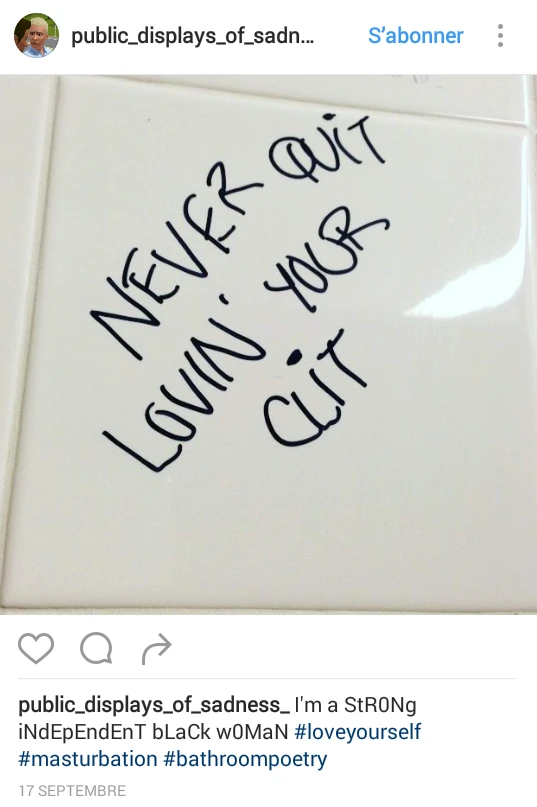 public_displays_of_sadn...
S'abonner
NEVER QUIT
LOVIN' YOUR
CLIT
public_displays_of_sadness_ I'm a StR0Ng
iNdEpEndEnT bLaCk w0MaN #loveyourself
#masturbation #bathroompoetry
17 SEPTEMBRE